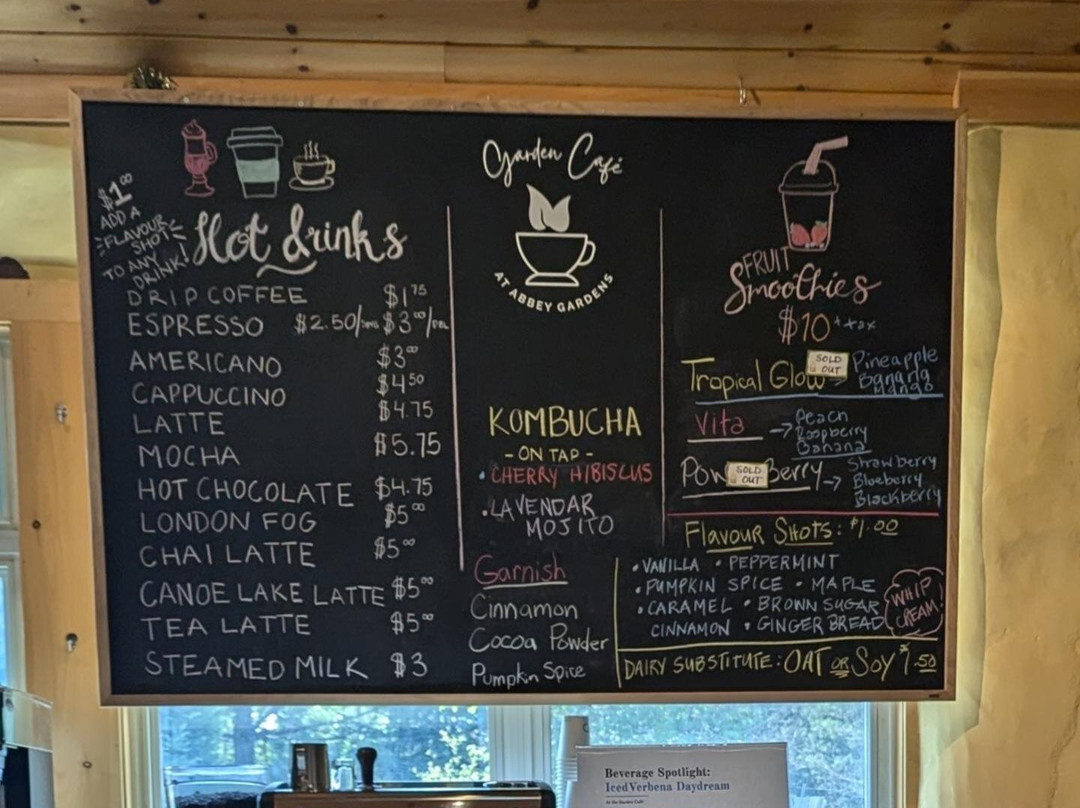 $1.00
ADD A
FLAVOUR
SHOT
TO ANY
DRINK!
Hot drinks
DRIP COFFEE $1.75
ESPRESSO $2.50/ $3.00/
AMERICANO $3.00
CAPPUCCINO $4.50
LATTE $4.75
MOCHA $5.75
HOT CHOCOLATE $4.75
LONDON FOG $5.00
CHAI LATTE $5.00
CANOE LAKE LATTE $5.00
TEA LATTE $5.00
STEAMED MILK $3
Garden Café
AT ABBEY GARDENS
KOMBUCHA
- ON TAP -
• CHERRY HIBISCUS
• LAVENDAR
MOJITO
Garnish
Cinnamon
Cocoa Powder
Pumpkin Spice
FRUIT
Smoothies
$10 + tax
Tropical Glow SOLD OUT → Pineapple
Banana
Mango
Vita → Peach
Raspberry
Banana
Pow SOLD OUT Berry → Strawberry
Blueberry
Blackberry
Flavour Shots: $1.00
• VANILLA • PEPPERMINT
• PUMPKIN SPICE • MAPLE
• CARAMEL • BROWN SUGAR
CINNAMON • GINGERBREAD
WHIP
CREAM!
DAIRY SUBSTITUTE: OAT OR SOY $1.50
Beverage Spotlight:
Iced Verbena Daydream